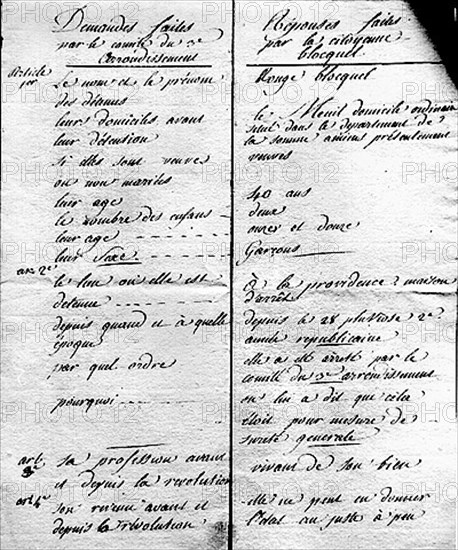 Demandes faites
par le comité du 3e
arrondissement
article
1er
Le nom et le prénom
des détenus
leurs domiciles avant
leur détention
si elles sont veuves
ou non mariées
leur age
le nombre des enfans
leur age
leur Sexe
art 2e
le lieu où elle est
detenue
depuis quand et à quelle
époque
par quel ordre
pourquoi
art
3e
sa profession avant
et depuis la revolution
art 4e
son revenu avant et
depuis la révolution
Réponses faites
par la citoyenne
blocquel
Rouge blocquel
le Meuil domicile ordinaire
situé dans le departement de
la somme amiens présentement
veuves
40 ans
deux
onze et douze
Garçons
à la providence maison
d'arrêt
depuis le 28 pluviose 2e
année republicaine
elle a été arrêté par le
comité du 3e arrondissement
on lui a dit que cela
étoit pour mesure de
sureté generale
vivant de son bien
elle ne peut en donner
l'état au juste à peu